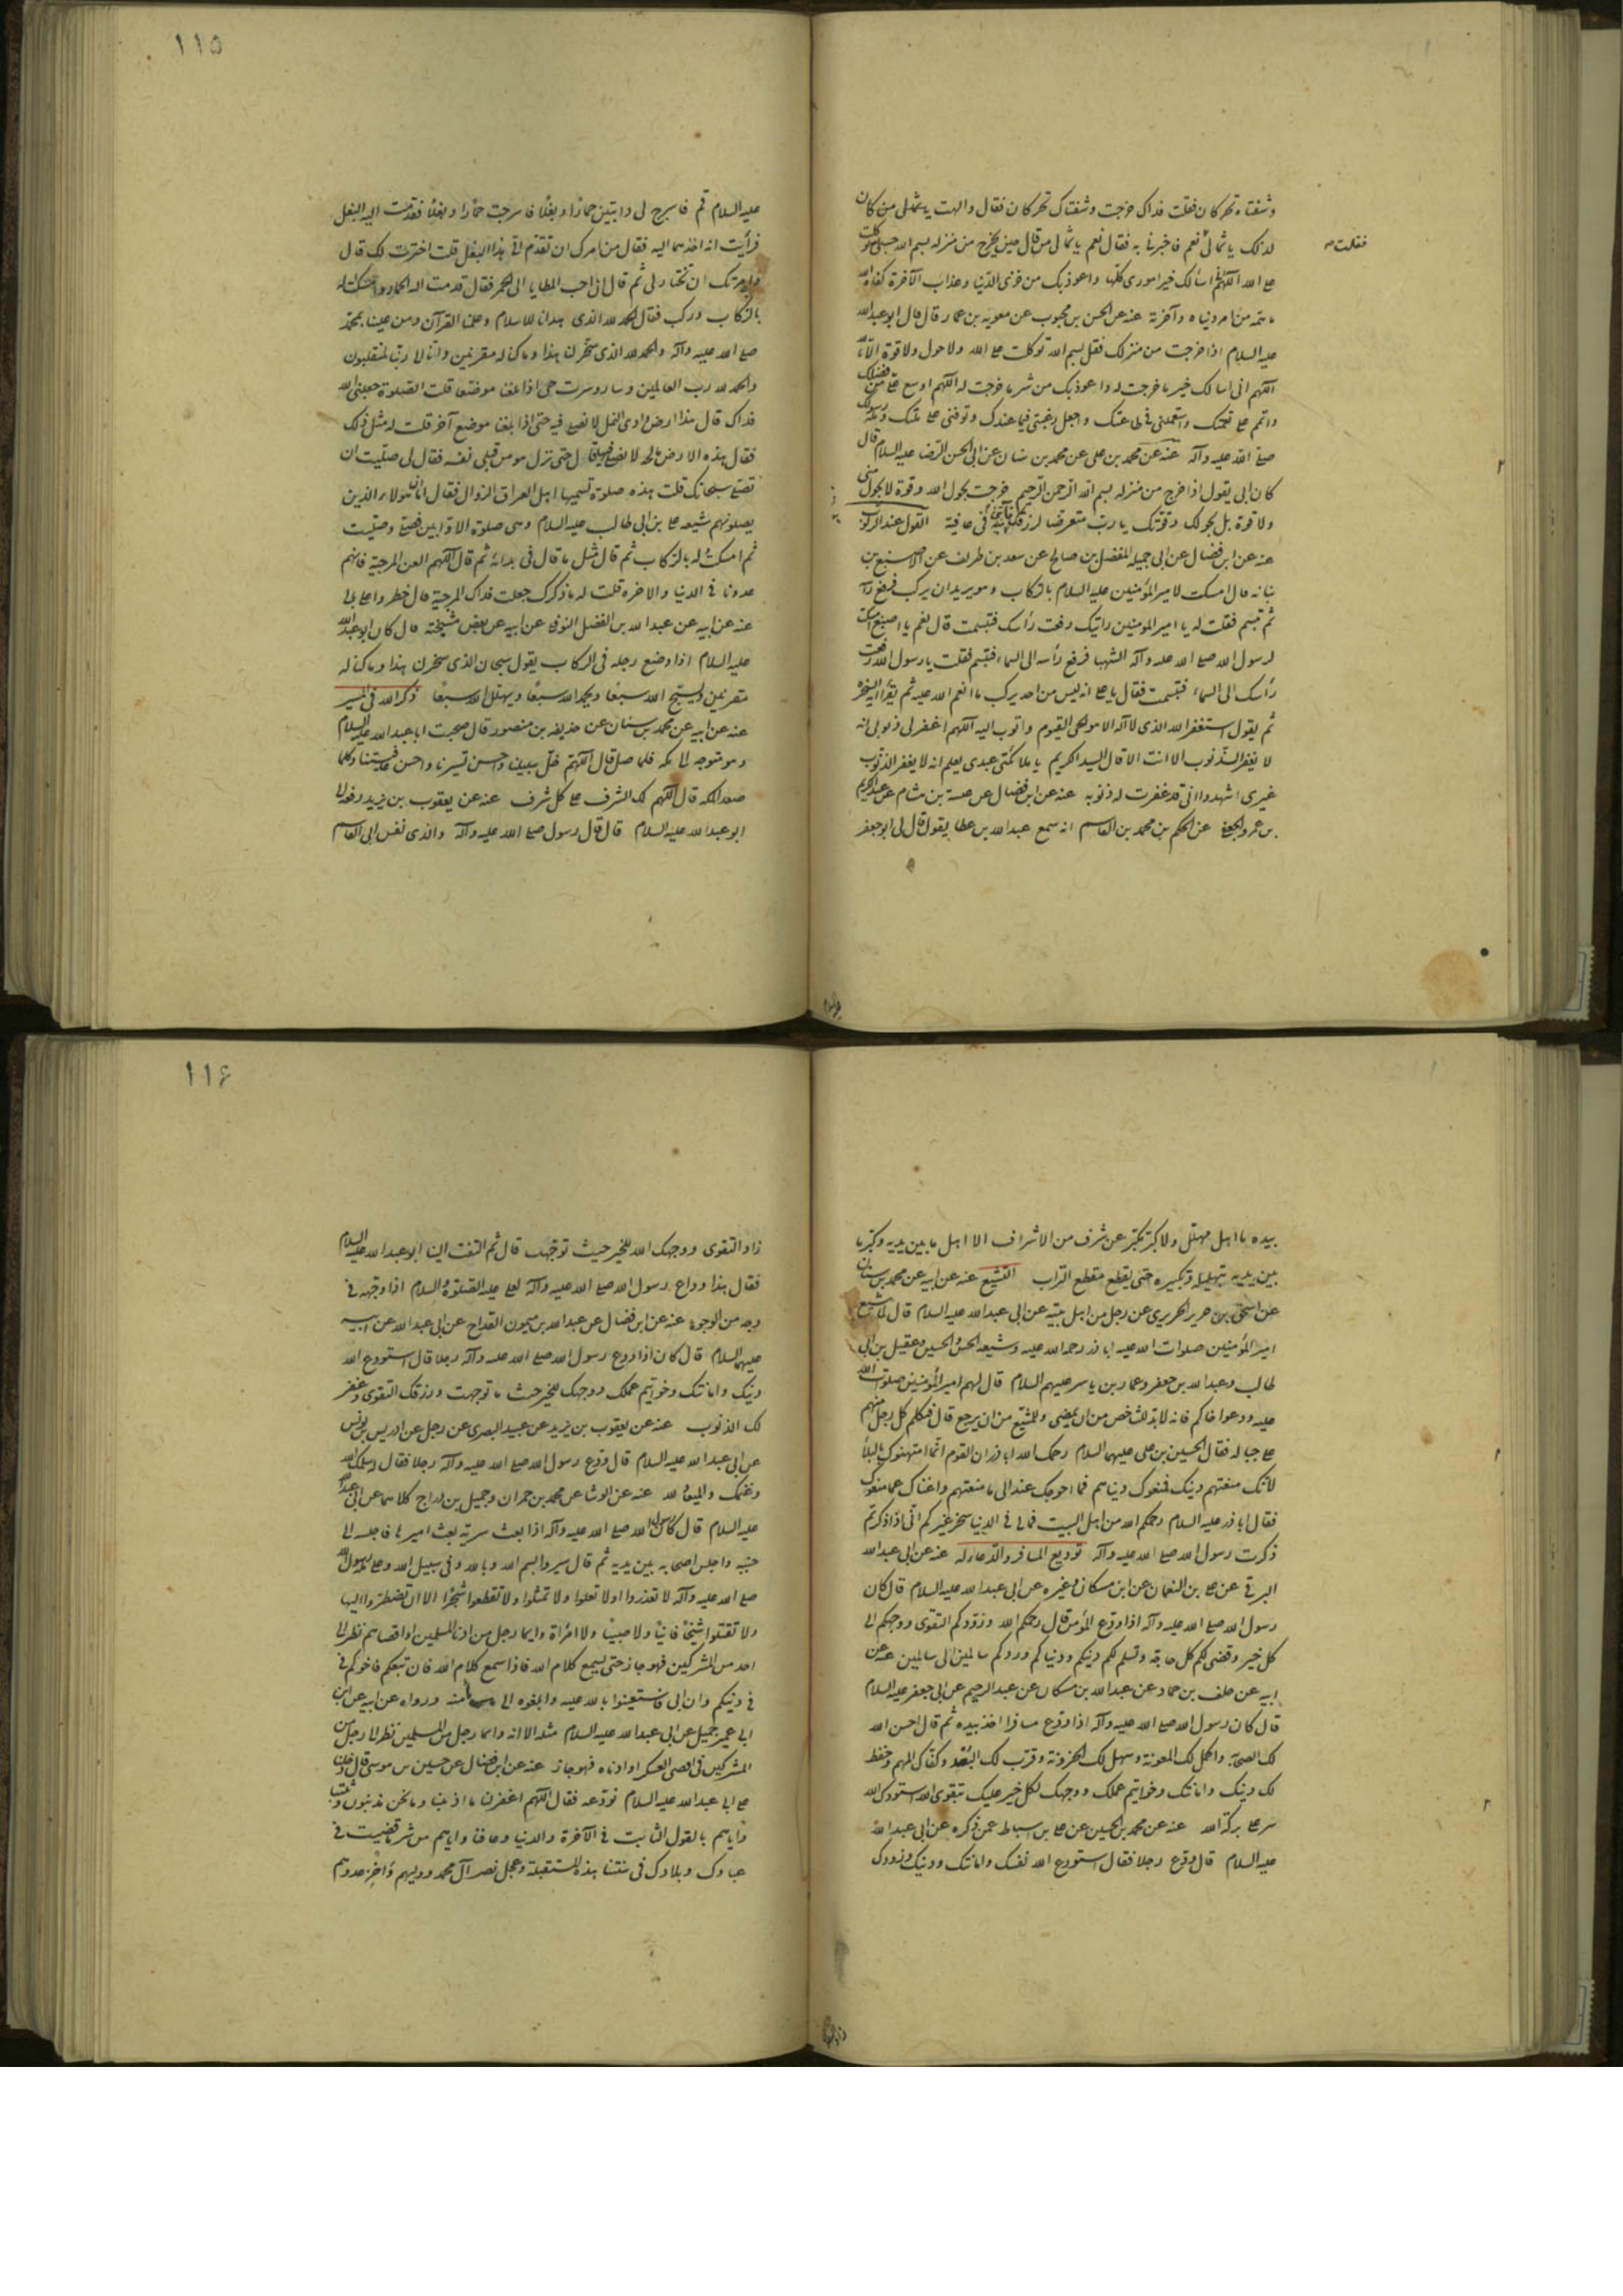 وشفتاه تحركان فقلت فداك خرجت وشفتاك تحركان فقال والهت يا ثمالى من كان
فقلت
لذلك يا ثمالى نعم فاخبرنا به فقال نعم يا ثمالى من قال حين يخرج من منزله بسم الله حسبى الله توكلت
على الله اللهم انى اسألك خير امورى كلها واعوذ بك من خزى الدنيا وعذاب الآخرة كفاه الله
ما همه من امر دنياه وآخرته عنه عن الحسن بن محبوب عن معويه بن عمار قال قال ابو عبد الله
عليه السلام اذا خرجت من منزلك فقل بسم الله توكلت على الله ولا حول ولا قوة الا بالله
اللهم انى اسالك خير ما خرجت له واعوذ بك من شر ما خرجت له اللهم اوسع على من فضلك
واتمم على نعمتك واستعملنى فى طاعتك واجعل رغبتى فيما عندك وتوفنى على ملتك وملة رسولك
صلى الله عليه وآله عنه عن محمد بن على عن محمد بن سنان عن ابى الحسن الرضا عليه السلام قال
كان ابى يقول اذا خرج من منزله بسم الله الرحمن الرحيم خرجت بحول الله وقوة لا بحول منى
ولا قوة بل بحولك وقوتك يا رب متعرضا لرزقك فأتنى به فى عافية القول عند الركوب
عنه عن ابن فضال عن ابى جميله المفضل بن صالح عن سعد بن طريف عن الاصبغ بن
نباته قال امسكت لامير المؤمنين عليه السلام بالركاب وهو يريد ان يركب فرفع رأسه
ثم تبسم فقلت له يا امير المؤمنين رايتك رفعت رأسك فتبسمت قال نعم يا اصبغ امسكت
لرسول الله صلى الله عليه وآله الشهبا فرفع رأسه الى السماء فتبسم فقلت يا رسول الله رفعت
رأسك الى السماء فتبسمت فقال يا على انه ليس من احد يركب ما انعم الله عليه ثم يقرأ آية السخرة
ثم يقول استغفر الله الذى لا اله الا هو الحى القيوم واتوب اليه اللهم اغفر لى ذنوبى انه
لا يغفر الذنوب الا انت الا قال السيد الكريم يا ملائكتى عبدى يعلم انه لا يغفر الذنوب
غيرى اشهدوا انى قد غفرت له ذنوبه عنه عن ابن فضال عن عبسة بن هشام عن عبد الكريم
بن عمرو الجعفى عن الحكم بن محمد بن القاسم انه سمع عبد الله بن عطا يقول قال لى ابو جعفر
١١٥
عليه السلام قم فاسرج لى دابتين حمارا وبغلا فاسرجت حمارا وبغلا فقدمت اليه البغل
فرأيت انه احبهما اليه فقال من امرك ان تقدم الى هذا البغل قلت اخترت لك قال
وامرتك ان تختار لى ثم قال ان احب المطايا الى الحمر فقال قدمت اليه الحمار وامسكت له
بالركاب وركب فقال الحمد لله الذى هدانا للاسلام وعلمنا القرآن ومن علينا بمحمد
صلى الله عليه وآله والحمد لله الذى سخر لنا هذا وما كنا له مقرنين وانا الى ربنا لمنقلبون
والحمد لله رب العالمين وسار وسرت حتى اذا بلغنا موضعا قلت الصلوة جعلنى الله
فداك قال هذا ارض وادى النمل لا نصلى فيه حتى اذا بلغنا موضع آخر قلت له مثل ذلك
فقال هذه الارض مالحه لا نصلى فيها قال حتى نزل هو من قبلى نفسه فقال لى صليت ان
تصلى سبحتك قلت هذه صلوة تسميها اهل العراق الزوال فقال اما ان هؤلاء الذين
يصلونهم شيعه على بن ابى طالب عليه السلام وهى صلوة الاوابين فصلى وصليت
ثم امسكت له بالركاب ثم قال مثل ما قال فى بداته ثم قال اللهم العن المرجية فانهم
عدونا فى الدنيا والاخره قلت له ما ذكرك جعلت فداك المرجية قال خطروا على بالى
عنه عن ابيه عن عبد الله بن الفضل النوفلى عن ابيه عن بعض مشيخته قال كان ابو عبد الله
عليه السلام اذا وضع رجله فى الركاب يقول سبحان الذى سخر لنا هذا وما كنا له
مقرنين ويسبح الله سبعا ويحمد الله سبعا ويهلل الله سبعا ذكر الله فى المسير
عنه عن ابيه عن محمد بن سنان عن حذيفه بن منصور قال صحبت ابا عبد الله عليه السلام
وهو متوجه الى مكه فلما صلى قال اللهم خل سبيلنا واحسن تسيرنا واحسن عافيتنا وكلما
صعد اكمه قال اللهم لك الشرف على كل شرف عنه عن يعقوب بن يزيد رفعه الى
ابو عبد الله عليه السلام قال قال رسول صلى الله عليه وآله والذى نفس ابى القاسم
بيده ما اهل مهلل ولا كبر مكبر عن شرف من الاشراف الا اهل ما بين يديه وكبر ما
بين يديه بتهليله وتكبيره حتى يقطع مقطع التراب التشيع عنه عن ابيه عن محمد بن سنان
عن اسحق بن حرير الحريرى عن رجل من اهل بيته عن ابى عبد الله عليه السلام قال لما شيع
امير المؤمنين صلوات الله عليه ابا ذر رحمه الله عليه وشيعه الحسن والحسين وعقيل بن ابى
طالب وعبد الله بن جعفر وعمار بن ياسر عليهم السلام قال لهم امير المؤمنين صلوات الله
عليه ودعوا اخاكم فانه لا بد للشاخص من ان يمضى وللمشيع من ان يرجع قال فتكلم كل رجل منهم
على حياله فقال الحسين بن على عليهما السلام رحمك الله ابا ذر ان القوم انما امتهنوك بالبلاء
لانك منعتهم دينك فمنعوك دنياهم فما احوجك غدا الى ما منعتهم واغناك عما منعوك
فقال ابا ذر عليه السلام رحمكم الله من اهل البيت فما لى فى الدنيا سخر غيركم انى اذا ذكرتم
ذكرت رسول الله صلى الله عليه وآله توديع المسافر والدعاء له عنه عن ابى عبد الله
البرقى عن على بن النعمان عن ابن مسكان وغيره عن ابى عبد الله عليه السلام قال كان
رسول الله صلى الله عليه وآله اذا ودع المؤمن قال رحمكم الله وزودكم التقوى ووجهكم الى
كل خير وقضى لكم كل حاجة وسلم لكم دينكم ودنياكم وردكم سالمين الى سالمين عنه عن
ابيه عن خلف بن حماد عن عبد الله بن مسكان عن عبد الرحيم عن ابى جعفر عليه السلام
قال كان رسول الله صلى الله عليه وآله اذا ودع مسافرا اخذ بيده ثم قال احسن الله
لك الصحبة واكمل لك المعونة وسهل لك الحزونة وقرب لك البعد وكفاك المهم وحفظ
لك دينك وامانتك وخواتيم عملك ووجهك لكل خير عليك بتقوى الله استودعك الله
سر على بركة الله عنه عن محمد بن الحسين عن على بن اسباط عمن ذكره عن ابى عبد الله
عليه السلام قال ودع رجلا فقال استودع الله نفسك وامانتك ودينك وزودك
١١٦
زاد التقوى ووجهك الله للخير حيث توجهت قال ثم التفت الينا ابو عبد الله عليه السلام
فقال هذا وداع رسول الله صلى الله عليه وآله لعلى عليه الصلوة والسلام اذا وجهه فى
وجه من الوجوه عنه عن ابن فضال عن عبد الله بن ميمون القداح عن ابى عبد الله عن ابيه
عليهما السلام قال كان اذا ودع رسول الله صلى الله عليه وآله رجلا قال استودع الله
دينك وامانتك وخواتيم عملك ووجهك للخير حيث ما توجهت ورزقك التقوى وغفر
لك الذنوب عنه عن يعقوب بن يزيد عن عبيد البصرى عن رجل عن ادريس بن يونس
عن ابى عبد الله عليه السلام قال ودع رسول الله صلى الله عليه وآله رجلا فقال سلمك الله
وغنمك والميعاد لله عنه عن الوشا عن محمد بن حمران وجميل بن دراج كلاهما عن ابى عبد الله
عليه السلام قال كان رسول الله صلى الله عليه وآله اذا بعث سرية بعث اميرها فاجلسه الى
جنبه واجلس اصحابه بين يديه ثم قال سيروا بسم الله وبالله وفى سبيل الله وعلى ملة رسول الله
صلى الله عليه وآله لا تغدروا ولا تغلوا ولا تمثلوا ولا تقطعوا شجرا الا ان تضطروا اليها
ولا تقتلوا شيخا فانيا ولا صبيا ولا امراة وايما رجل من ادنى المسلمين او اقصاهم نظر الى
احد من المشركين فهو جار حتى يسمع كلام الله فاذا سمع كلام الله فان تبعكم فاخوكم فى
فى دينكم وان ابى فاستعينوا بالله عليه وابلغوه الى مأمنه ورواه عن ابيه عن ابن
ابى عمير جميل عن ابى عبد الله عليه السلام مثله الا انه وايما رجل من المسلمين نظر الى رجل من
المشركين فى اقصى العسكر او ادناه فهو جار عنه عن ابن فضال عن حسين بن موسى قال دخلنا
على ابى عبد الله عليه السلام نودعه فقال اللهم اغفر لنا ما اذنبنا وما نحن مذنبون وثبتنا
واياهم بالقول الثابت فى الآخرة والدنيا وعافنا واياهم من شر ما قضيت فى
عبادك وبلادك فى سنتنا هذه المستقبلة وعجل نصر آل محمد ووليهم واخز عدوهم